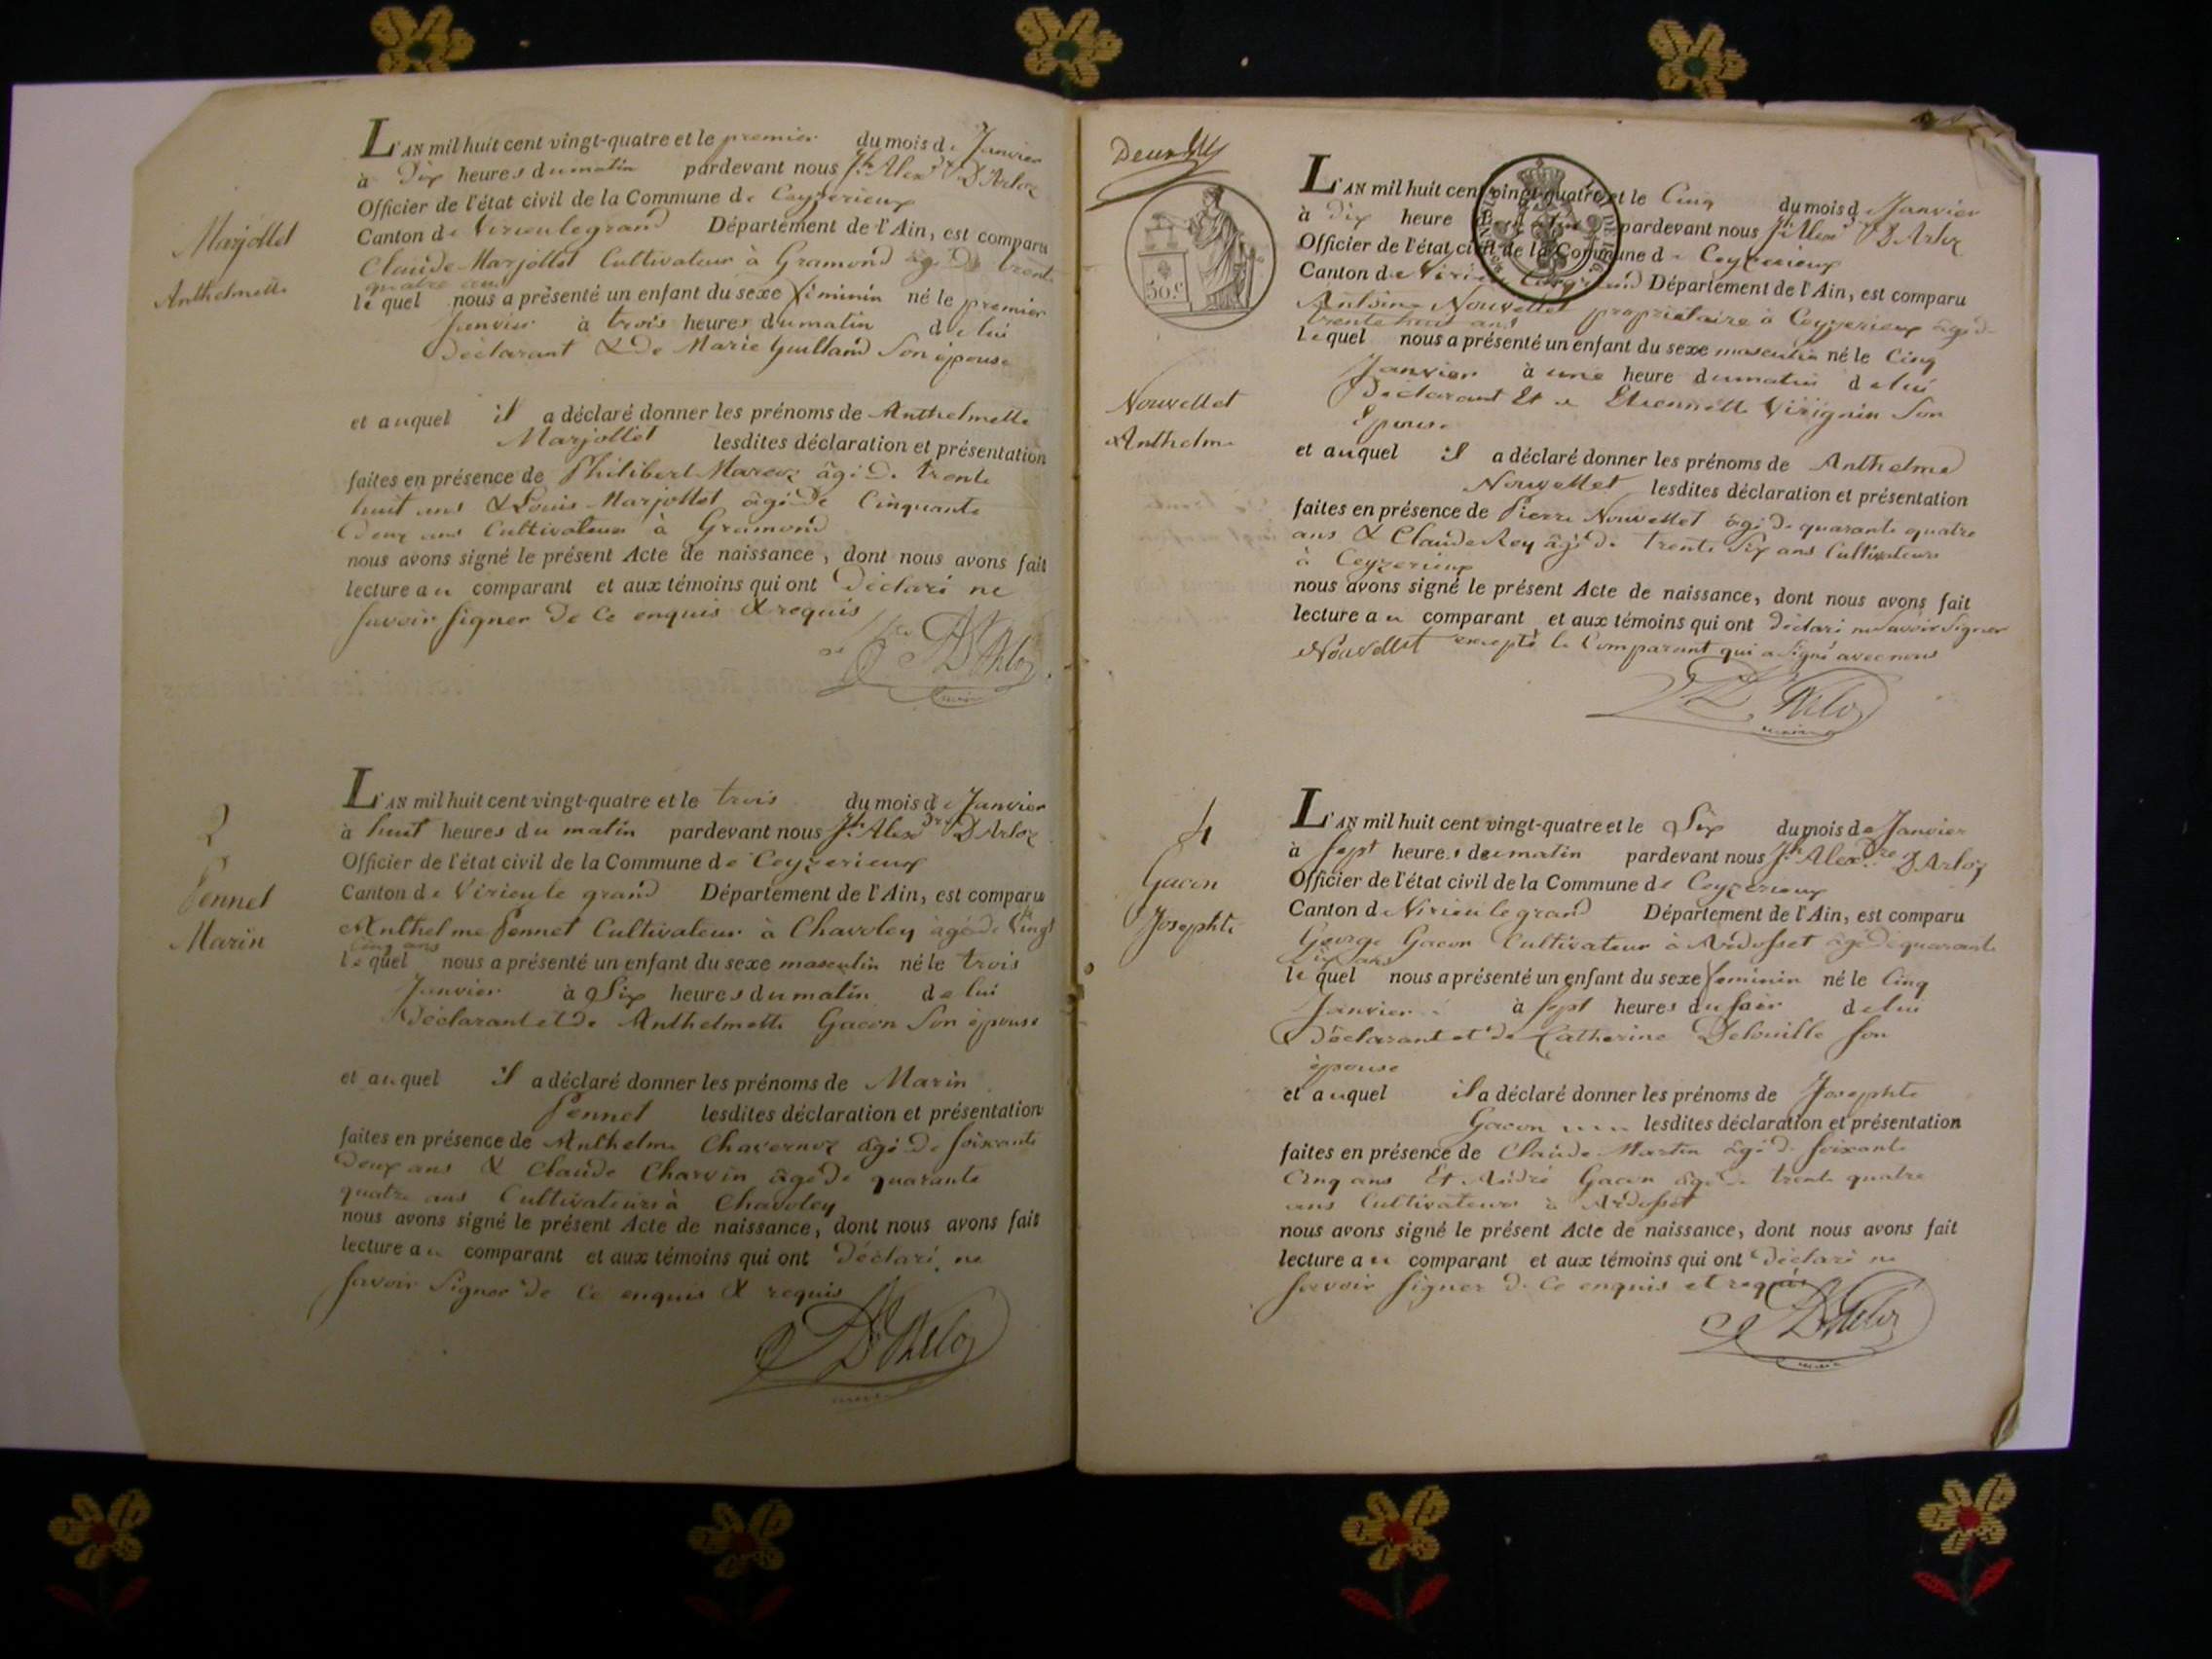 Marjollet
Anthelmette
L'AN mil huit cent vingt-quatre et le premier du mois de Janvier
à Dix heures du matin pardevant nous Jh. Alexdre D'Arloz
Officier de l'état civil de la Commune de Ceyzerieux
Canton de Virieulegrand Département de l'Ain, est comparu
Claude Marjollet Cultivateur à Gramond âgé De trente
quatre ans
lequel nous a présenté un enfant du sexe féminin né le premier
Janvier à trois heures du matin de lui
Déclarant & de Marie Guilland Son épouse
et auquel il a déclaré donner les prénoms de Anthelmette
Marjollet lesdites déclaration et présentation
faites en présence de Philibert âgé De trente
huit ans & Louis Marjollet âgé De Cinquante
Deux ans Cultivateurs à Gramond
nous avons signé le présent Acte de naissance, dont nous avons fait
lecture au comparant et aux témoins qui ont Déclaré ne
Savoir Signer De Ce enquis & requis
D'Arloz
maire
2
Pennet
Marin
L'AN mil huit cent vingt-quatre et le trois du mois de Janvier
à huit heures du matin pardevant nous Jh. Alexdre D'Arloz
Officier de l'état civil de la Commune de Ceyzerieux
Canton de Virieu le grand Département de l'Ain, est comparu
Anthelme Pennet Cultivateur à Chavoley âgé de Vingt
Cinq ans
lequel nous a présenté un enfant du sexe masculin né le trois
Janvier à Six heures du matin de lui
Déclarant et De Anthelmette Gacon Son épouse
et auquel il a déclaré donner les prénoms de Marin
Pennet lesdites déclaration et présentation
faites en présence de Anthelme Chavernoz âgé De Soixante
Deux ans & Claude Charvin âgé De quarante
quatre ans Cultivateurs à Chavoley
nous avons signé le présent Acte de naissance, dont nous avons fait
lecture au comparant et aux témoins qui ont Déclaré ne
Savoir Signer De Ce enquis & requis
D'Arloz
Deux
50 c.
Nouvellet
Anthelme
L'AN mil huit cent vingt-quatre et le Cinq du mois de Janvier
à Dix heure pardevant nous Jh. Alexdre D'Arloz
Officier de l'état civil de la Commune de Ceyzerieux
Canton de Virieu Département de l'Ain, est comparu
Antoine Nouvellet propriétaire à Ceyzerieux âgé De
trente huit ans
lequel nous a présenté un enfant du sexe masculin né le Cinq
Janvier à une heure du matin de lui
Déclarant Et De Etiennette Virignin Son
Epouse
et auquel il a déclaré donner les prénoms de Anthelme
Nouvellet lesdites déclaration et présentation
faites en présence de Pierre Nouvellet âgé De quarante quatre
ans & Claude Rey âgé De trente Six ans Cultivateurs
à Ceyzerieux
nous avons signé le présent Acte de naissance, dont nous avons fait
lecture au comparant et aux témoins qui ont Déclaré ne Savoir Signer
Nouvellet excepté le Comparant qui a Signé avec nous
D'Arloz
maire
4
Gacon
Josephte
L'AN mil huit cent vingt-quatre et le Six du mois de Janvier
à Sept heures du matin pardevant nous Jh. Alexdre D'Arloz
Officier de l'état civil de la Commune de Ceyzerieux
Canton de Virieu le grand Département de l'Ain, est comparu
George Gacon Cultivateur à Ardosset âgé De quarante
Six ans
lequel nous a présenté un enfant du sexe feminin né le Cinq
Janvier à Sept heures du Soir de lui
Déclarant et De Catherine Delouille Son
épouse
et auquel il a déclaré donner les prénoms de Josephte
Gacon lesdites déclaration et présentation
faites en présence de Claude Martin âgé De Soixante
Cinq ans Et André Gacon âgé De trente quatre
ans Cultivateurs à Ardosset
nous avons signé le présent Acte de naissance, dont nous avons fait
lecture au comparant et aux témoins qui ont Déclaré ne
Savoir Signer De Ce enquis et requis
D'Arloz
maire